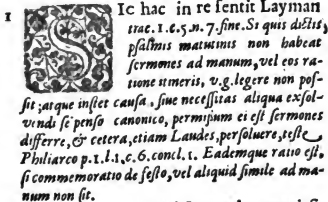 1 SIc hac in re sentit Layman
trac.1.c.5.n.7.fine. Si quis dictis,
psalmis matutinis non habeat
sermones ad manum, vel eos ra-
tione itineris, v.g. legere non pos-
sit; atque instet causa, siue necessitas aliqua exsol-
vendi se penso canonico, permissum ei est sermones
differre, & cetera, etiam Laudes, persoluere, teste
Philiarco p.1.l.1.c.6.concl.1. Eademque ratio est,
si commemoratio de festo, vel aliquid simile ad ma-
num non sit.